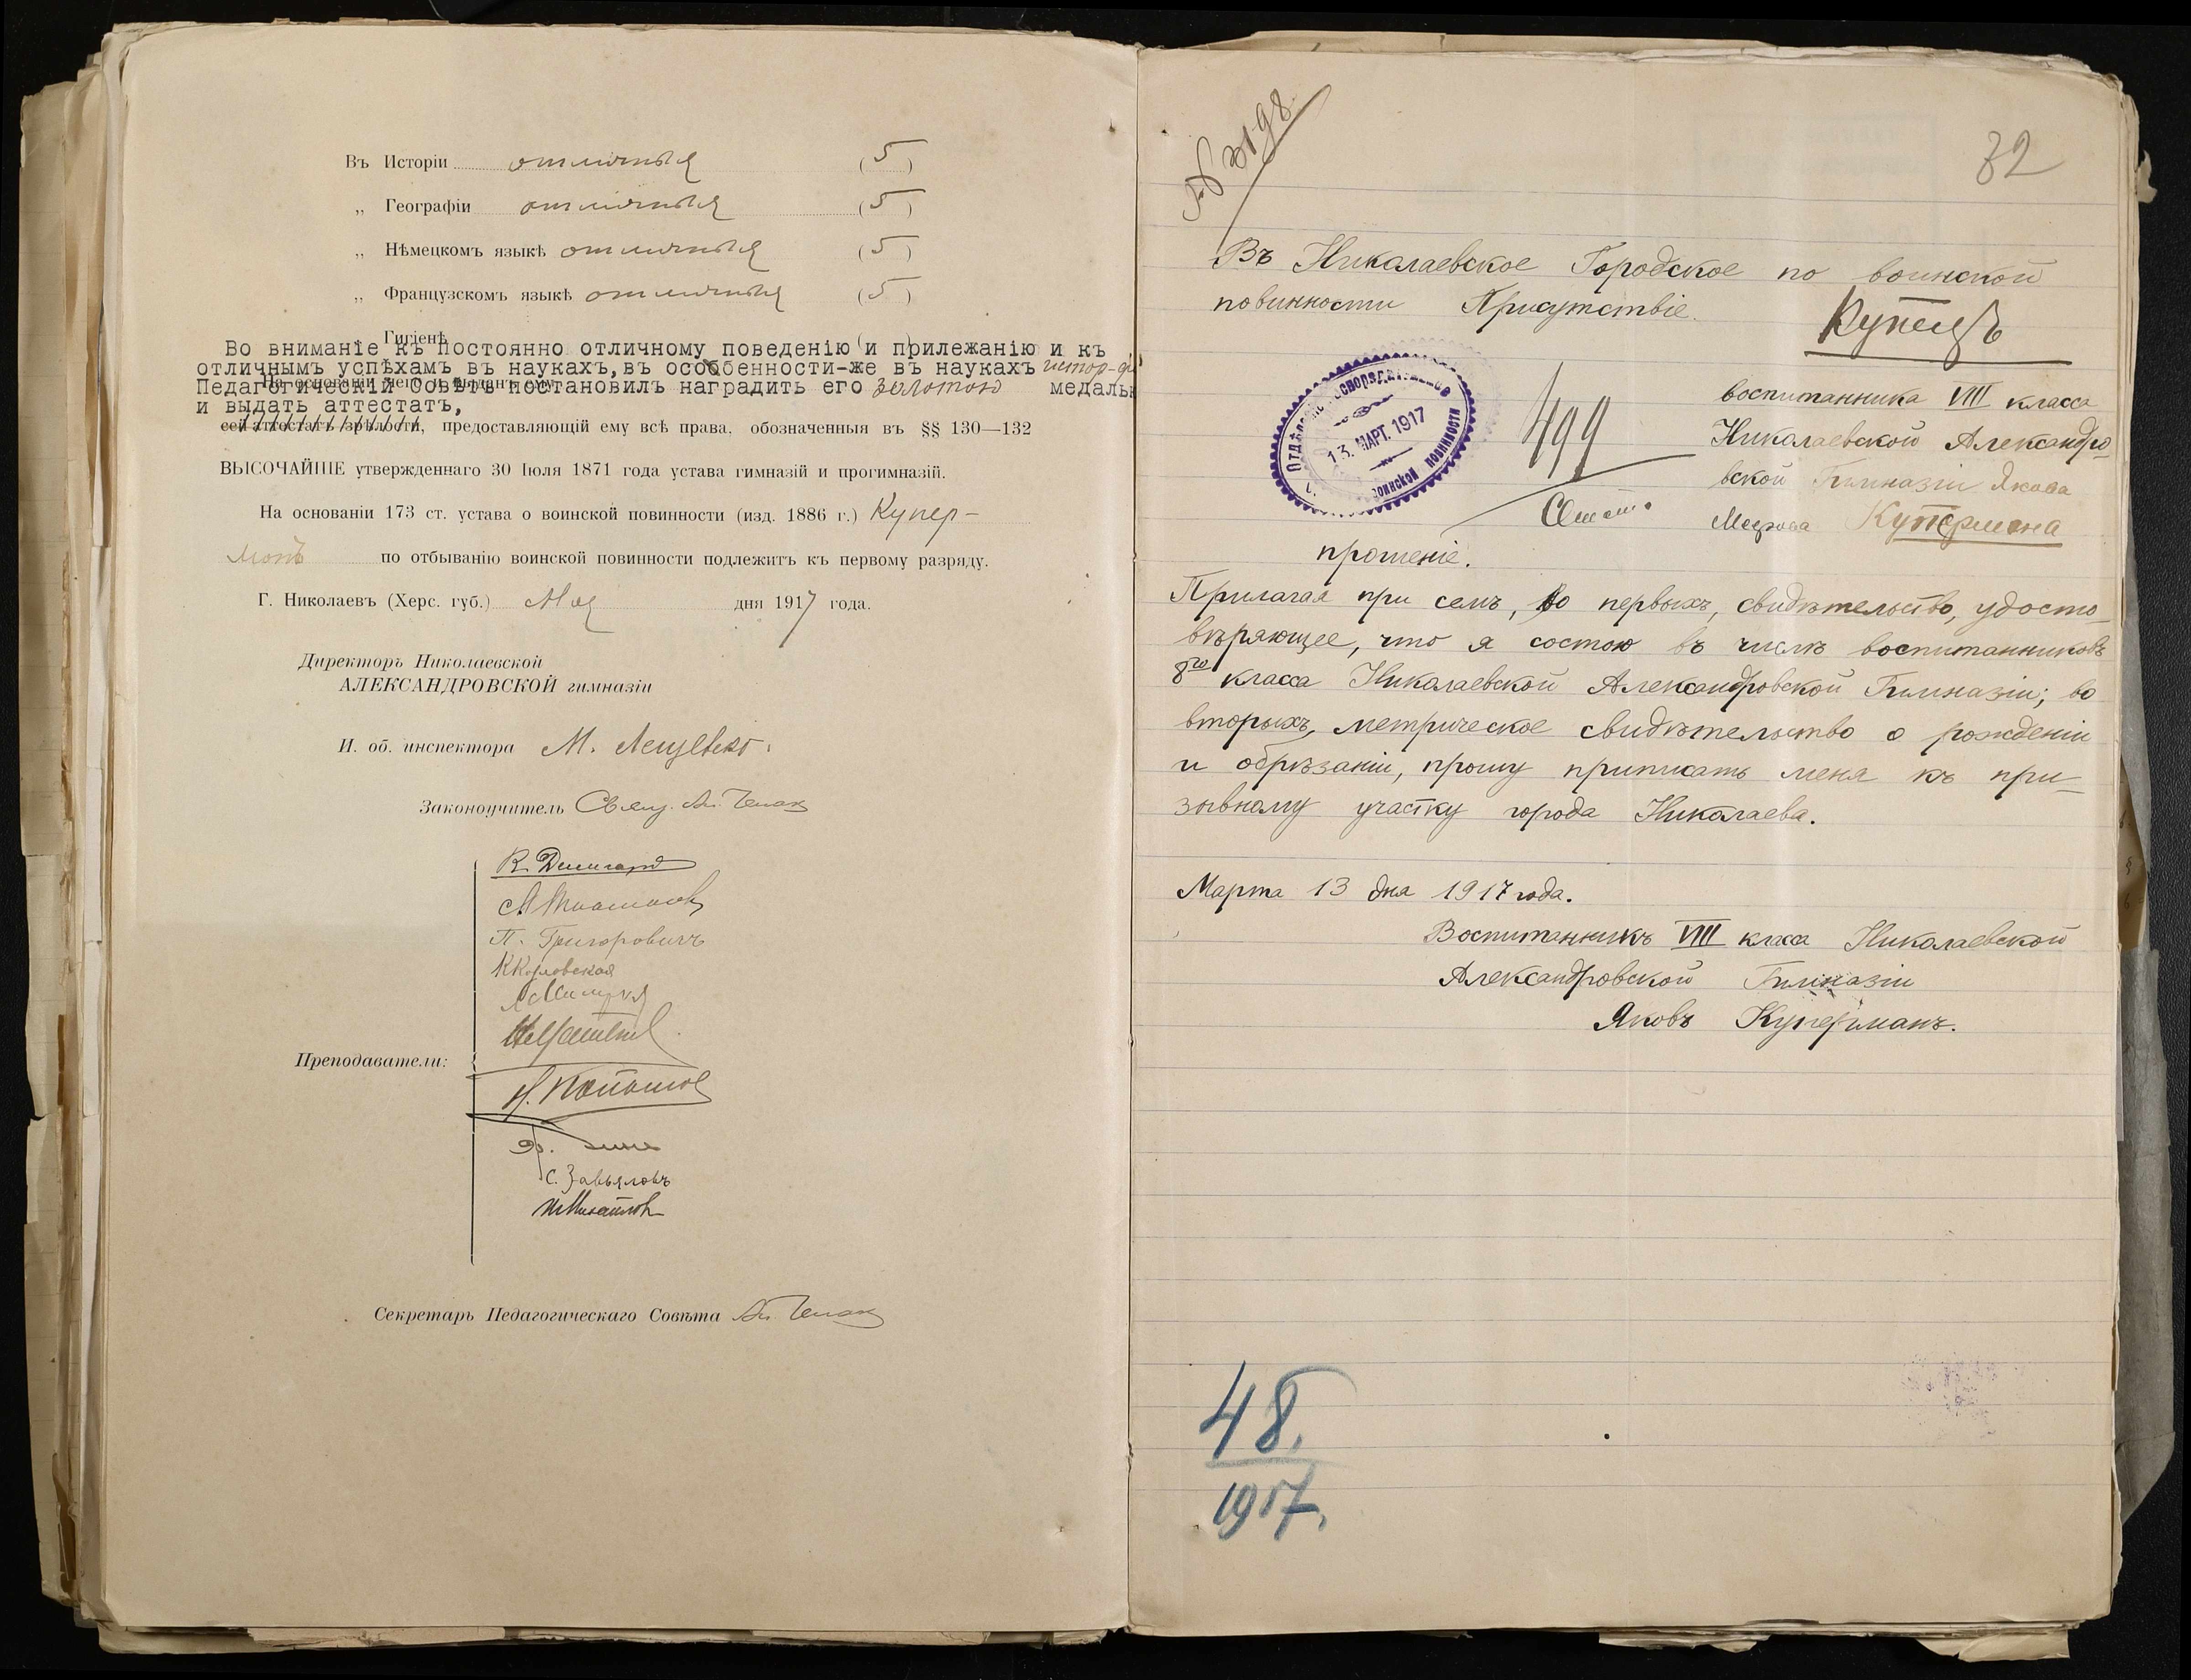 Въ Исторіи отличныя (5)
„ Географіи отличныя (5)
„ Нѣмецкомъ языкѣ отличныя (5)
„ Французскомъ языкѣ отличныя (5)
Гигіенѣ ( )
Во вниманіе къ постоянно отличному поведенію и прилежанію и къ
отличнымъ успѣхамъ въ наукахъ, въ особенности-же въ наукахъ истор-ф
Педагогическій Совѣтъ постановилъ наградить его золотою медалью
и выдать аттестатъ,
сей аттестатъ зрѣлости, предоставляющій ему всѣ права, обозначенныя въ §§ 130—132
ВЫСОЧАЙШЕ утвержденнаго 30 Іюля 1871 года устава гимназій и прогимназій.
На основаніи 173 ст. устава о воинской повинности (изд. 1886 г.) Купер-
манъ по отбыванію воинской повинности подлежитъ къ первому разряду.
Г. Николаевъ (Херс. губ.) Мая дня 1917 года.
Директоръ Николаевской
АЛЕКСАНДРОВСКОЙ гимназіи
И. об. инспектора М.
Законоучитель Свящ. Ал.
П. Григоровичъ
Преподаватели:
С. Завьяловъ
Секретарь Педагогическаго Совѣта Ал.
3198
32
Въ Николаевское Городское по воинской
повинности Присутствіе.
13. МАРТ. 1917
воинской повинности
499
воспитанника VIII класса
Николаевской Александро-
вской Гимназіи Якова
Меерова Купермана
прошеніе.
Прилагая при семъ, во первыхъ, свидѣтельство, удосто-
вѣряющее, что я состою въ числѣ воспитанниковъ
8го класса Николаевской Александровской Гимназіи; во
вторыхъ, метрическое свидѣтельство о рожденіи
и обрѣзаніи, прошу приписать меня къ при-
зывному участку города Николаева.
Марта 13 дня 1917 года.
Воспитанникъ VIII класса Николаевской
Александровской Гимназіи
Яковъ Куперманъ.
48.
1917.